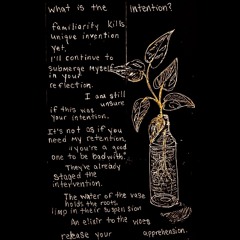 What is the Intention?
familiarity kills
unique invention
yet,
I'll continue to
submerge myself
in your
reflection.
I am still
unsure
if this was
your intention.
It's not as if you
need my retention,
"you're a good
one to be bad with"
They've already
staged the
intervention.
The water of the vase
holds the roots
limp in their suspension
An elixir to the woes
release your apprehension.